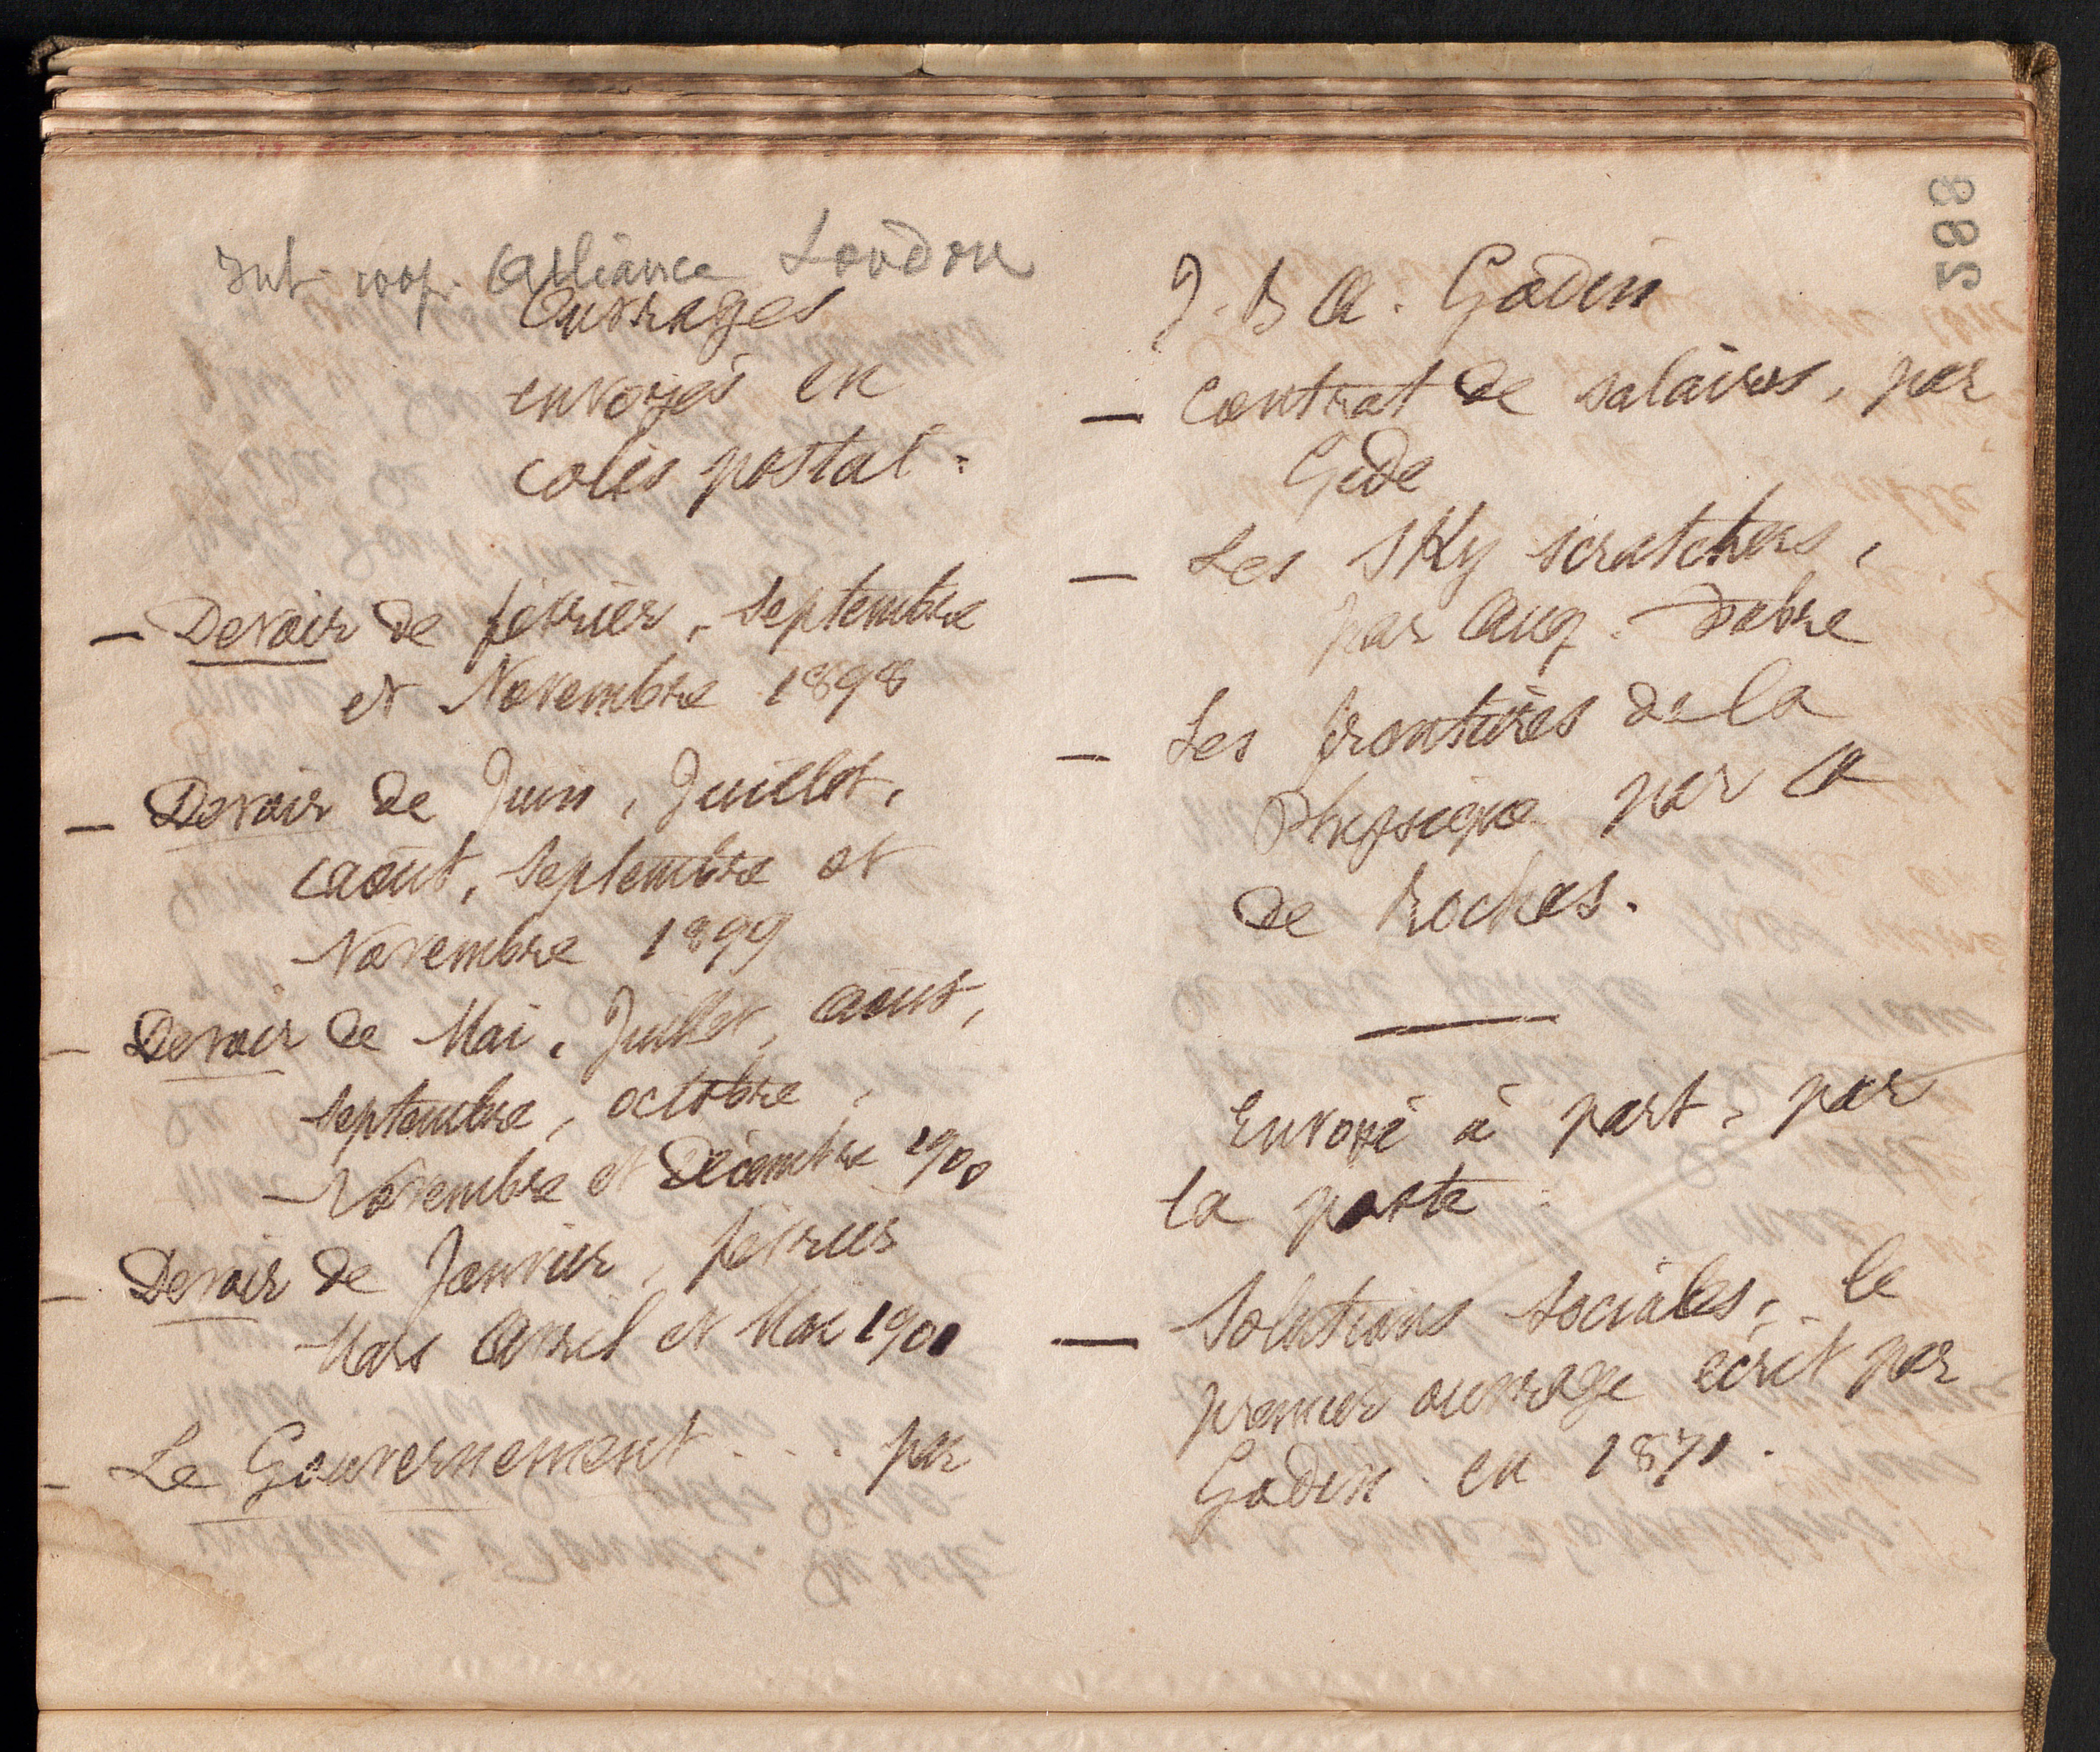 Int. coop. Alliance London
Ouvrages
envoyés en
colis postal :
— Devoir de février, Septembre
et Novembre 1898
— Devoir de Juin, Juillet,
août, Septembre et
Novembre 1899
— Devoir de Mai, Juillet, août,
septembre, octobre,
Novembre et Décembre 1900
— Devoir de Janvier, février
Mars Avril et Mai 1901
— Le Gouvernement . . . par
288
J. B A. Godin
— Contrat de salaires, par
Gide
— Les Sky scratchers,
par Aug. Fabre
— Les frontières de la
Physique par A
de Rochas.
Envoyé à part, par
la poste :
— Solutions sociales, le
premier ouvrage écrit par
Godin en 1871.